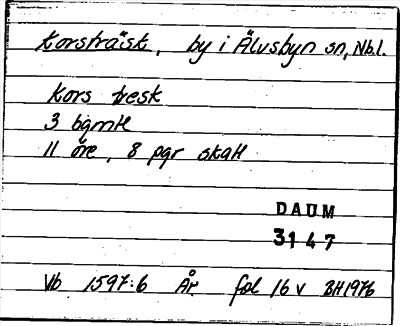 Korsträsk, by i Älvsbyn sn, Nb.l.
Kors tresk
3 bgmtl
11 öre, 8 pgr skatt
DAUM
3147
Vb 1597:6 År fol 16 v BH1976